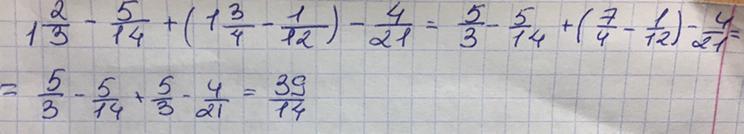 1 2/3 - 5/14 + (1 3/4 - 1/12) - 4/21 = 5/3 - 5/14 + (7/4 - 1/12) - 4/21 =
= 5/3 - 5/14 + 5/3 - 4/21 = 39/14